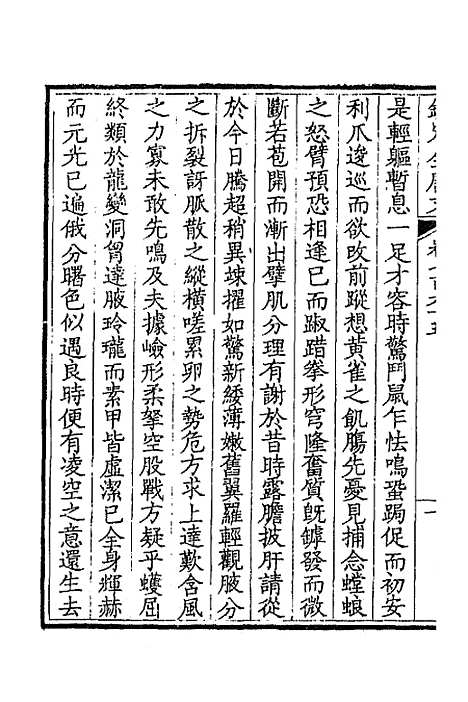 是輕軀暫息一足才容時驚鬥鼠乍怯鳴蛩跼促而初安
利爪逡巡而欲改前蹤想黃雀之飢腸先憂見捕念螳蜋
之怒臂預恐相逢已而踧踖拳形穹隆奮質旣罅發而微
斷若苞開而漸出擘肌分理有謝於昔時露膽披肝請從
於今日騰超稍異竦擢如驚新緌薄嫩舊翼羅輕觀腋分
之拆裂訝脈散之縱橫嗟累卵之勢危方求上達歎含風
之力寡未敢先鳴及夫據嶮形柔拏空股戰方疑乎蠖屈
終類於龍變洞胷達腋玲瓏而素甲皆虛潔己全身輝赫
而元光已遍俄分曙色似遇良時便有凌空之意還生去